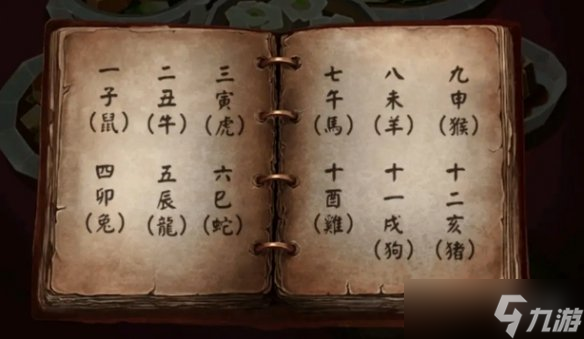 一子(鼠)
二丑(牛)
三寅(虎)
四卯(兔)
五辰(龍)
六巳(蛇)
七午(馬)
八未(羊)
九申(猴)
十酉(雞)
十一戌(狗)
十二亥(猪)
九游